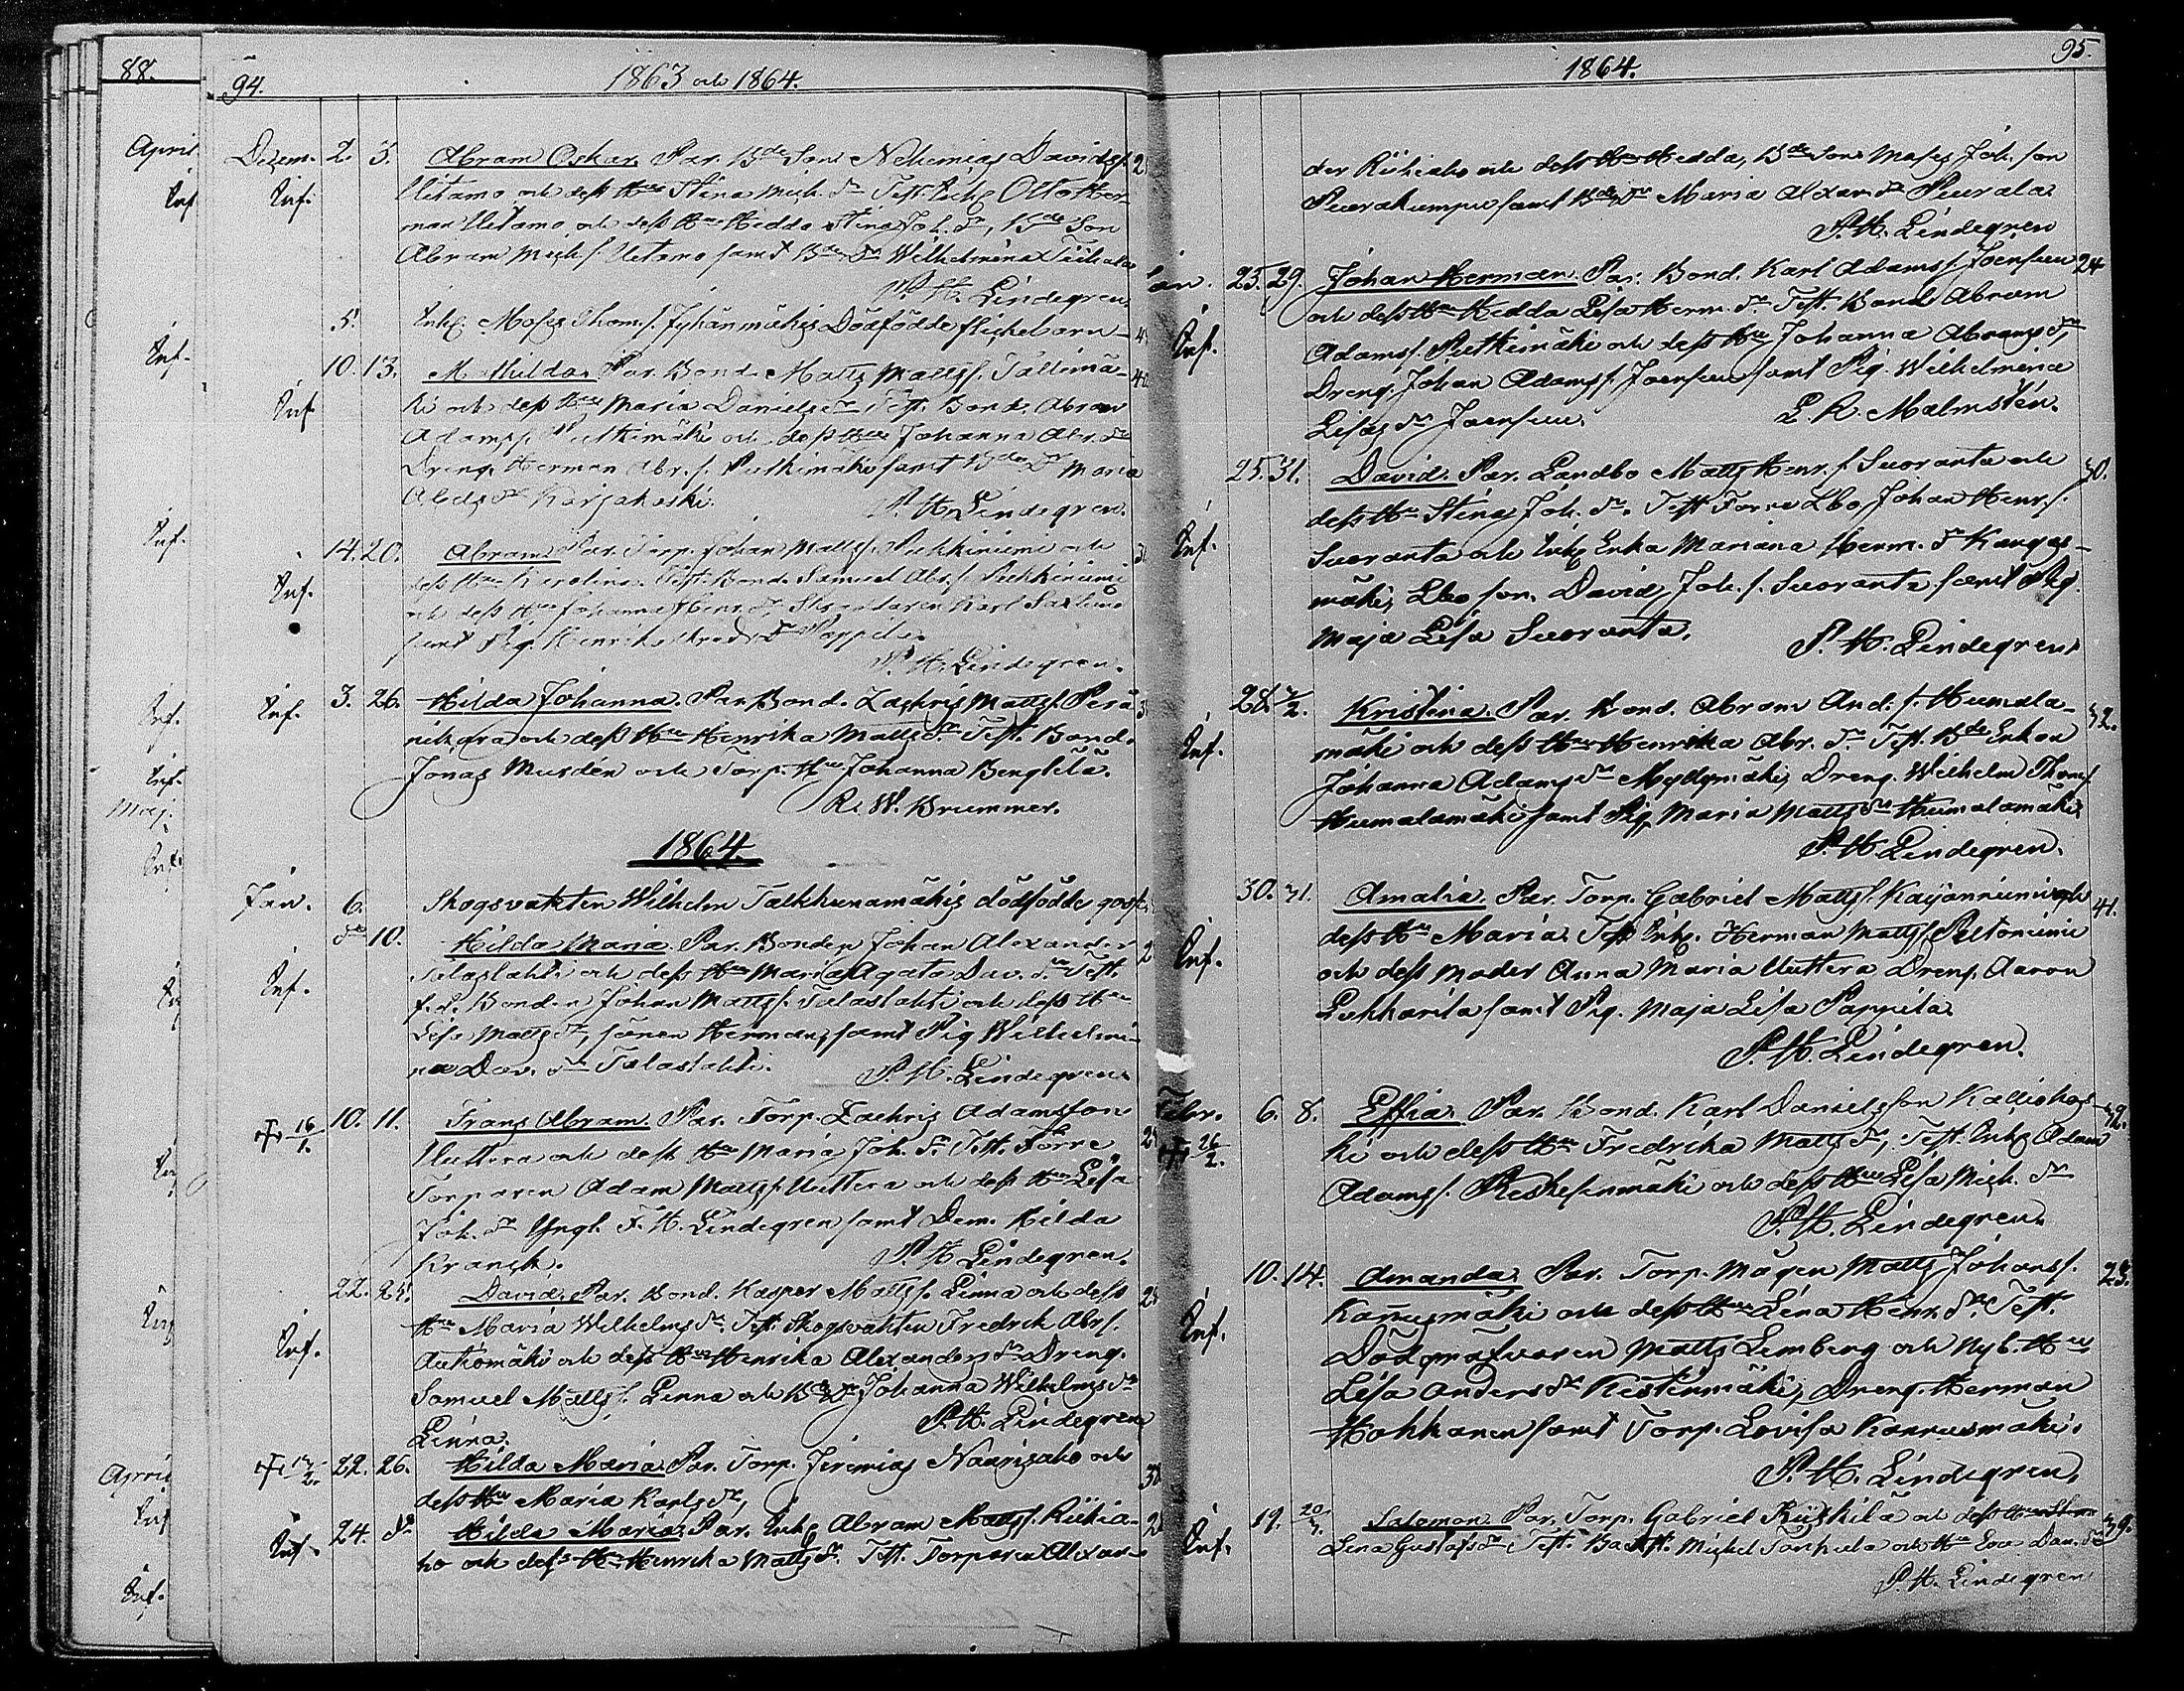 88.
April
Inf.
Inf.
Inf.
Inf.
Inf.
Maj.
Inf.
April
Inf.
Inf.
94. 1863 och 1864.
Dezem. 2. 3. Abram Oskar. Par. Bde Son Nehemias Davids s.
Inf. Uitamo och dess Hu Stina Mich. dr Test. Inh. Otto Her-
man Uitamo och dess Hu Hedda Stina Joh. dr, Bde Son
Abram Mich. s. Uitamo samt Bde Dr Wilhelmina
P. H. Lindegren.
5. Inh. Moses Thom. s. Jyhänmäkis Dödfödde flickebarn
10. 13. Mathilda. Par. Bond. Matts Matts s. Tallimä-
Inf. ki och dess Hu Maria Daniels dr Test. Bond. Abram
Adams s. Putkimäki och dess Hu Johanna Abr. dr
Dreng. Herman Abr. s. Putkimäki samt Bde Dr Maria
Karjakoski. P. H. Lindegren.
14. 20. Abram. Par. Torp. Johan Matts s. Pukkiniemi och
Inf. dess Hu Karolina. Test. Bond. Samuel Abr. s. Pukkiniemi
och dess Hu Johanna Henr. dr, Skräddaren Karl
samt Pig. Henrika dr Pappila.
P. H. Lindegren.
Inf. 3. 26. Hilda Johanna. Par. Bond. Zachris Matts s. Perä
och dess Hu Henrika Matts dr Test. Bond.
Jonas Musdén och Torp. Hu Johanna Bengtilä.
R. W. Brummer.
1864.
Jan. 6. Skogsvakten Wilhelm Talkkunamäkis dödfödde goss
do 10. Hilda Maria. Par. Bonden Johan Alexander
Inf. Talaslahti och dess Hu Maria Agata Dav. dr Test.
f. d. Bonden Johan Matts s. Talaslahti och dess Hu
Lisa Matts dr, sonen Herman, samt Pig Wilhelmi-
na Dav. dr Talaslahti. P. H. Lindegren.
† 16/1. 10. 11. Frans Abram. Par. Torp. Zachris Adamsson
Uuttera och dess Hu Maria Joh. dr Test. Förre
Torparen Adam Matts s. Uuttera och dess Hu Lisa
Joh. dr Yngl. F. H. Lindegren samt Dem. Hilda
Kranck. P. H. Lindegren.
22. 25. David. Par. Bond. Kasper Matts s. Linna och dess
Inf. Hu Maria Wilhelms dr Test. Skogsvakten Fredrik Abr s.
Autiomäki och dess Hu Henrika Alexanders dr Dreng.
Samuel Matts s. Linna och Bde Dr Johanna Wilhelms dr
Linna. P. H. Lindegren
22. 26. Hilda Maria. Par. Torp. Jeremias Naurisaho och
dess Hu Maria Karls dr,
Inf. 24. do Hilda Maria. Par. Inh. Abram Matts s. Riihia-
ho och dess Hu Henrika Matts dr Test. Torparen Alexan-
1864. 95.
der Riihiaho och dess Hu Hedda, Bde Son Moses Joh. son
Peurakumpu samt Bde Dr Maria Alexan. dr Peurala
P. H. Lindegren
Jan. 25. 29. Johan Herman. Par. Bond. Karl Adams s. Joensuu 24
och dess Hu Hedda Lisa Herm. dr Test. Bond. Abram
Inf. Adams s. Putkimäki och dess Hu Johanna Abrams dr,
Dreng. Johan Adams s. Joensuu samt Pig. Wilhelmina
Lisas dr Joensuu. E. R. Malmstén.
25. 31. David. Par. Landbo Matts Henr. s. Suoranta och 30.
dess Hu Stina Joh. dr. Test. Förra Lbo Johan Henr. s.
Inf. Suoranta och Inh. Enka Mariana Herm. dr Kangas-
mäki, Lbo son. David Joh. s. Suoranta samt Pig.
Maja Lisa Suoranta. P. H. Lindegren
28. 2/2. Kristina. Par. Bond. Abram And. s. Humala- 32.
Inf. mäki och dess Hu Henrika Abr. dr Test. Bde Enkan
Johanna Adams dr Myllymäki, Dreng. Wilhelm Thom s.
Humalamäki samt Pig Maria Matts dr Humalamäki
P. H. Lindegren.
30. 31. Amalia. Par. Torp. Gabriel Matts s. Kaijanniemi och 41.
Inf. dess Hu Maria. Test. Inh. Herman Matts s. Peltoniemi
och dess moder Anna Maria Uuttera Dreng. Aaron
Pukkarila samt Pig. Maja Lisa Pappila
P. H. Lindegren.
Febr. 6. 8. Effia. Par. Bond. Karl Danielsson Kalliokos- 42.
† 26/2. ki och dess Hu Fredrika Matts dr, Test. Inh. Adam
Adams s. och dess Hu Lisa Mich. dr
P. H. Lindegren.
10. 14. Amanda. Par. Torp. Mågen Matts Johans s. 23.
Inf. Kannusmäki och dess Hu Lena Henr. dr Test.
Dödgräfvaren Matts Lemberg och Nyb. Hu
Lisa Anders dr Kestinmäki, Dreng. Herman
Hakkanen samt Torp. Lovisa Kannusmäki.
P. H. Lindegren.
Inf. 19. 20/3. Salomon. Par. Torp. Gabriel Ryskilä och dess Hu 39.
Lena Gustafs dr Test. Backst. Michel Tanhula och Hu Eva Dan. dr
P. H. Lindegren